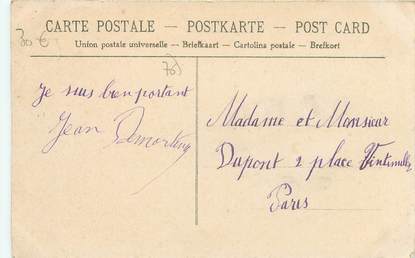 30 €
CARTE POSTALE – POSTKARTE – POST CARD
Union postale universelle – Briefkaart – Cartolina postale – Brefkort
Je suis bien portant
Jean
Madame et Monsieur
Dupont 2 place Vintimille
Paris